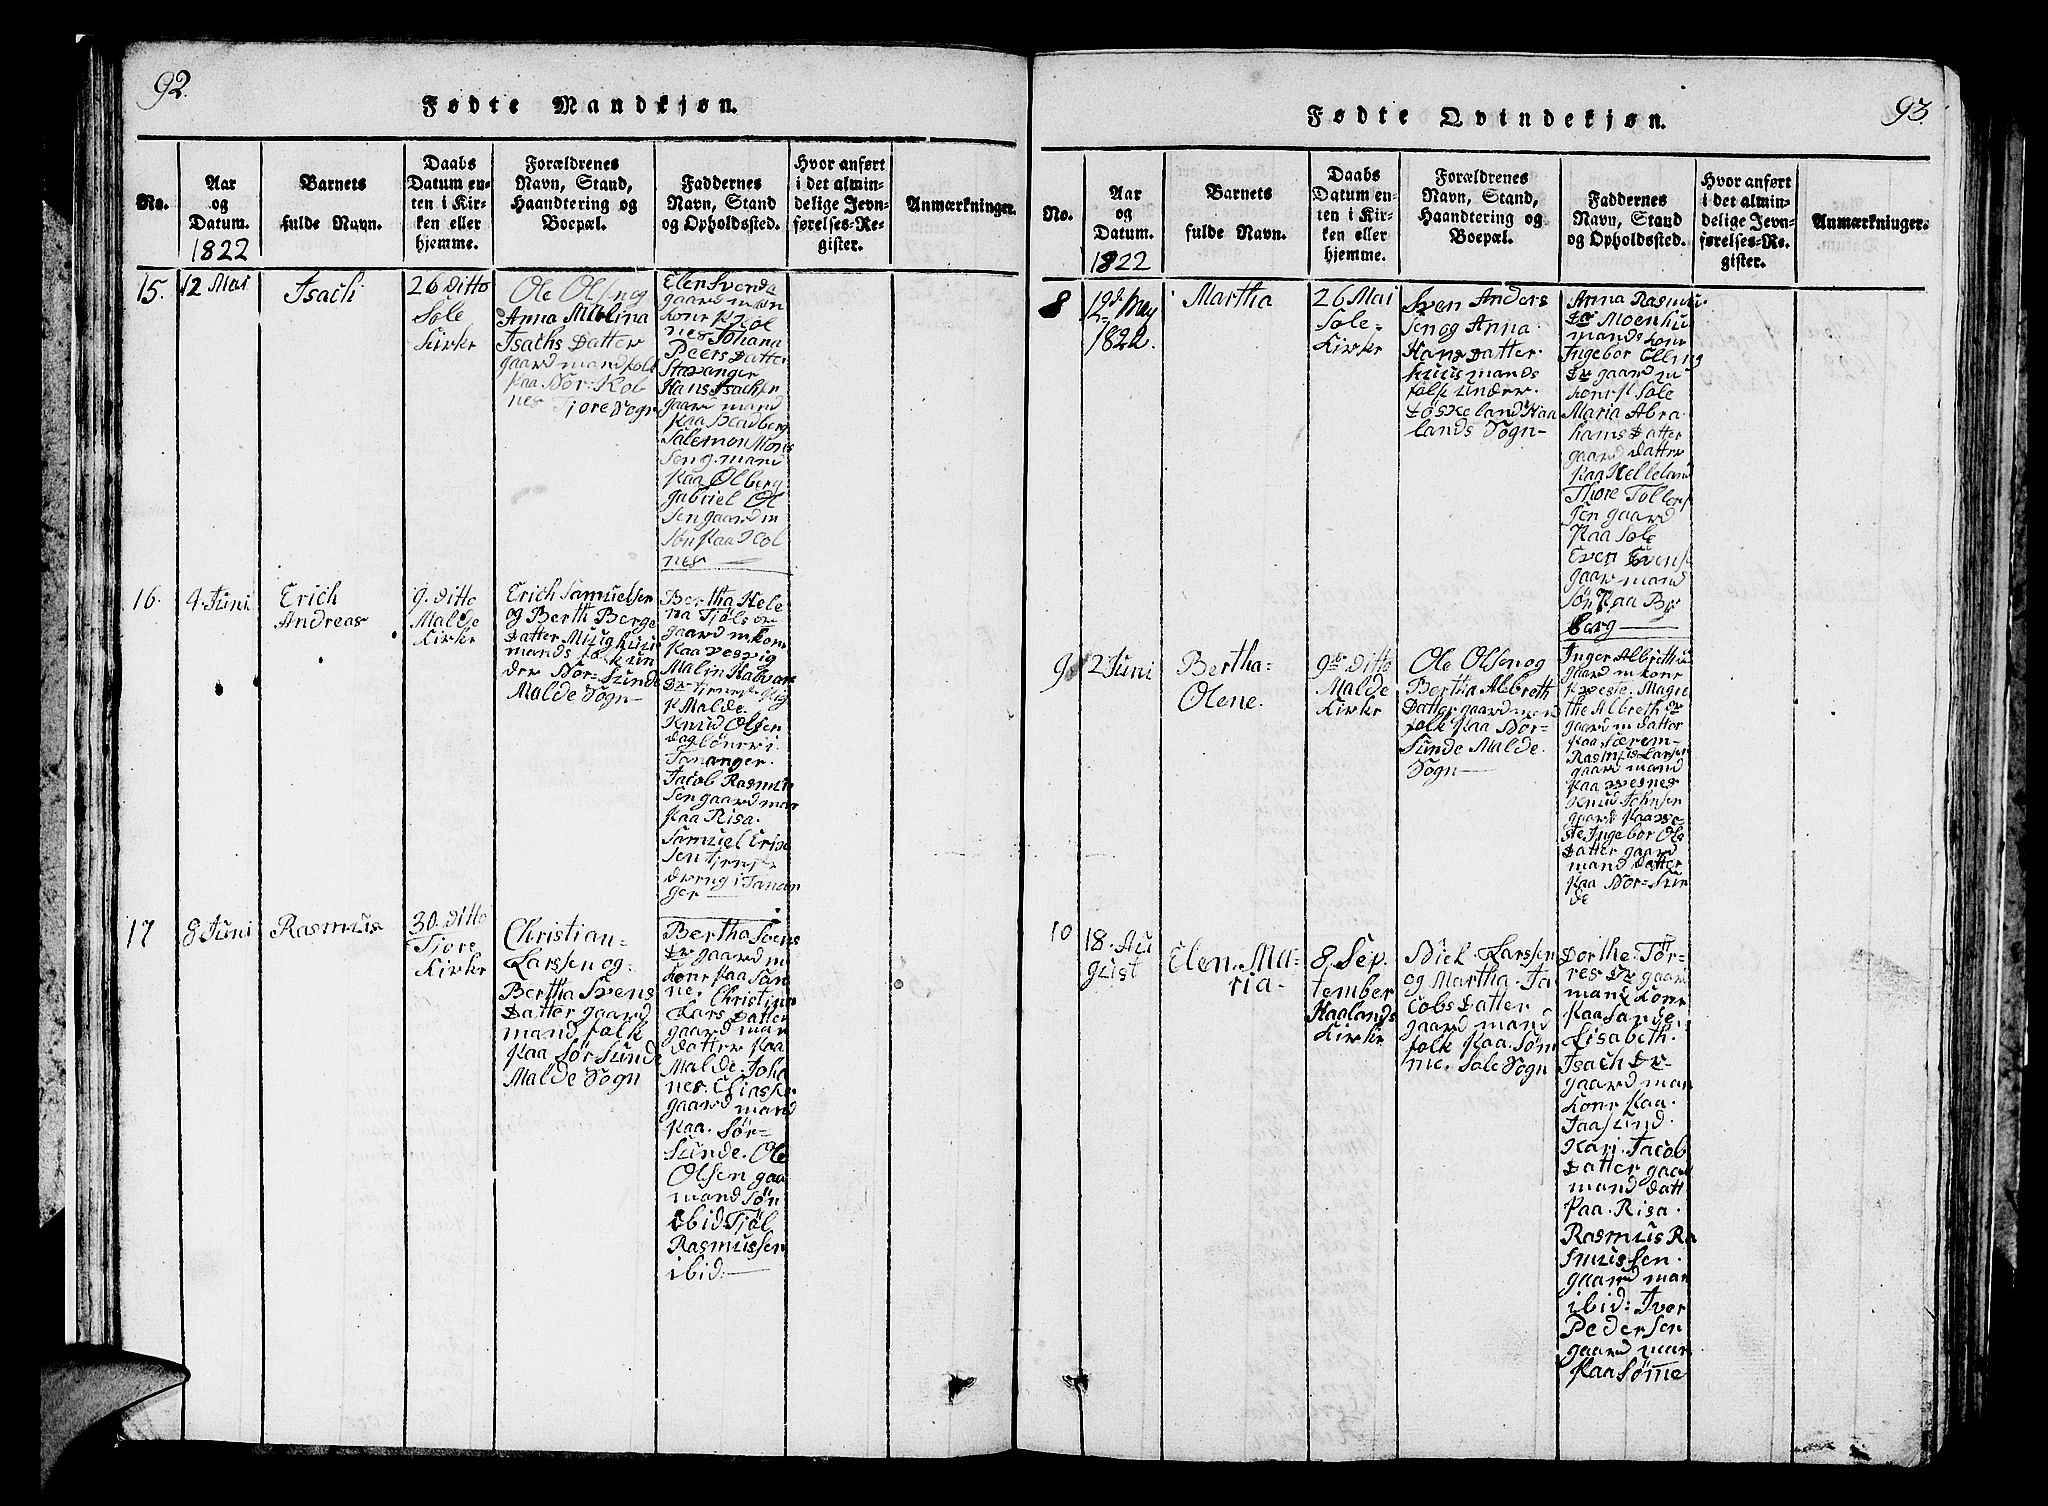 92.
Fødte Mandkjøn.
No.
Aar
og
Datum.
1822
Barnets
fulde Navn.
Daabs
Datum en-
ten i Kir-
ken eller
hjemme.
Forældrenes
Navn, Stand,
Haandtering og
Boepæl.
Faddernes
Navn, Stand
og Opholdssted.
Hvor anført
i det almin-
delige Jevn-
førelses-Re-
gister.
Anmærkninger.
15.
12 Mai
Isach
26 ditto
Sole
Kirke
Ole Olsen og
Anna Malina
Isachs Datter
gaardmandfolk
paa Nor. Kol
nes Tjore Sogn
Elen Svends
gaardman
kone Kol
nes Johana
Peers Datter
Stavanger
Hans Isachsen
gaardmand
paa Bradberg
Salemon Mons
sen g. mand
paa Olberg
gabriel Ol
sen gaardm
søn paa Kol
nes
16.
4 Juni
Erich
Andreas
9. ditto
Malde
Kirke
Erich Samuelsen
og Berth Berge
Datter
mands folk un
der Nor-Sunde
Malde Sogn
Bertha Hele
na Tjøls
gaardm kone
paa vesvig
Malin Halvar
Malde.
Knud Olsen
daglöner i
Tananger.
Jacob Rasmus
sen gaardman
paa Risa.
Samuel Erik
sen tjenest
dreng i Tanan
ger
17
8 Juni
Rasmus
30. ditto
Tjore
Kirke
Christian
Larssen og
Bertha Svens
Datter gaard
mand folk
paa Sør Sunde
Malde Sogn
Bertha Svens
Dr gaardm
kone paa Sun
ne. Christina
Lars Datter
gaardman
datter paa
Malde. Joha
nes. Eliassen
gaardmand
paa. Sør-
Sunde. Ole
Olsen gaa
mand søn
ibid Tjøl
Rasmussen
ibid:
93.
Fødte Qvindekjøn.
No.
Aar
og
Datum.
1822
Barnets
fulde Navn.
Daabs
Datum en-
ten i Kir-
ken eller
hjemme.
Forældrenes
Navn, Stand,
Haandtering og
Boepæl.
Faddernes
Navn, Stand
og Opholdssted.
Hvor anført
i det almin-
delige Jevn-
førelses-Re-
gister.
Anmærkninger.
8
12d May
1822.
Martha
26 Mai
Sole-
Kirke
Sven Anders
sen og Anna
Hans Datter
huusmands
folk under
Løskeland Haa
lands Sogn
Anna Rasmu
Dr Moen hu
mands kone
Ingebor Elling
Dr gaardm
kone Sole
Maria Abra
hams Datter
gaard datter
paa Helleland
Thore Tollef
sen gaard
paa Sole
Even Evens
gaarmand
Søn paa By
berg
9.
2 Juni
Bertha
Olene.
9de ditto
Malde
Kirke
Ole Olsen og
Bertha Albreth
Datter gaard mand
folk paa Nor-
Sunde Malde.
Sogn
Inger Albrethu
gaardm kone
Kveste. Magre
the Albreth Dr
gaard m datter
paa Særem-
Rasmus Larsen
gaardmand
paa vesnes
Knud Johnsen
gaard paa ve
ste Ingebor Ole
Datter gaard
mand datter
paa Nor-Sun
de
10
18. Au
gust
Elen. Ma-
ria-
8. Sep.
tember
Haalands
Kirke
Diek. Larssen
og Martha. Ja
cobs Datter
gaard mand
folk paa. Søm
me. Sole Sogn
Dorthe. Tør-
res Dr gaar
mand kone
paa Sande.
Lisabeth.
Isach Dr-
gaard man
kone paa.
Jaasund.
Kari. Jacob
Datter gaar
mand datt
paa. Risa.
Rasmus Ra
smussen.
gaard man
ibid: Iver
Pedersen
gaard man
paa Sømme